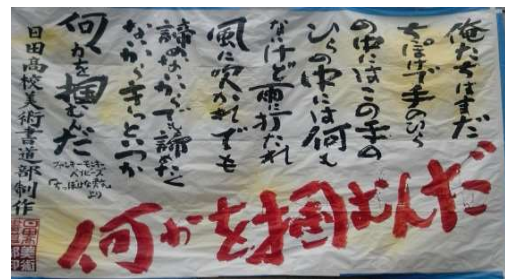 俺たちはまだ
ちっぽけで手のひら
の中にはこの手の
ひらの中には何も
ないけど雨に打たれ
風に吹かれでも
諦めないからでも諦めたく
ないからきっといつか
何かを掴むんだ
ファンキーモンキー
ベイビーズ
「ちっぽけな勇気」
より
日田高校美術書道部制作
何かを掴むんだ